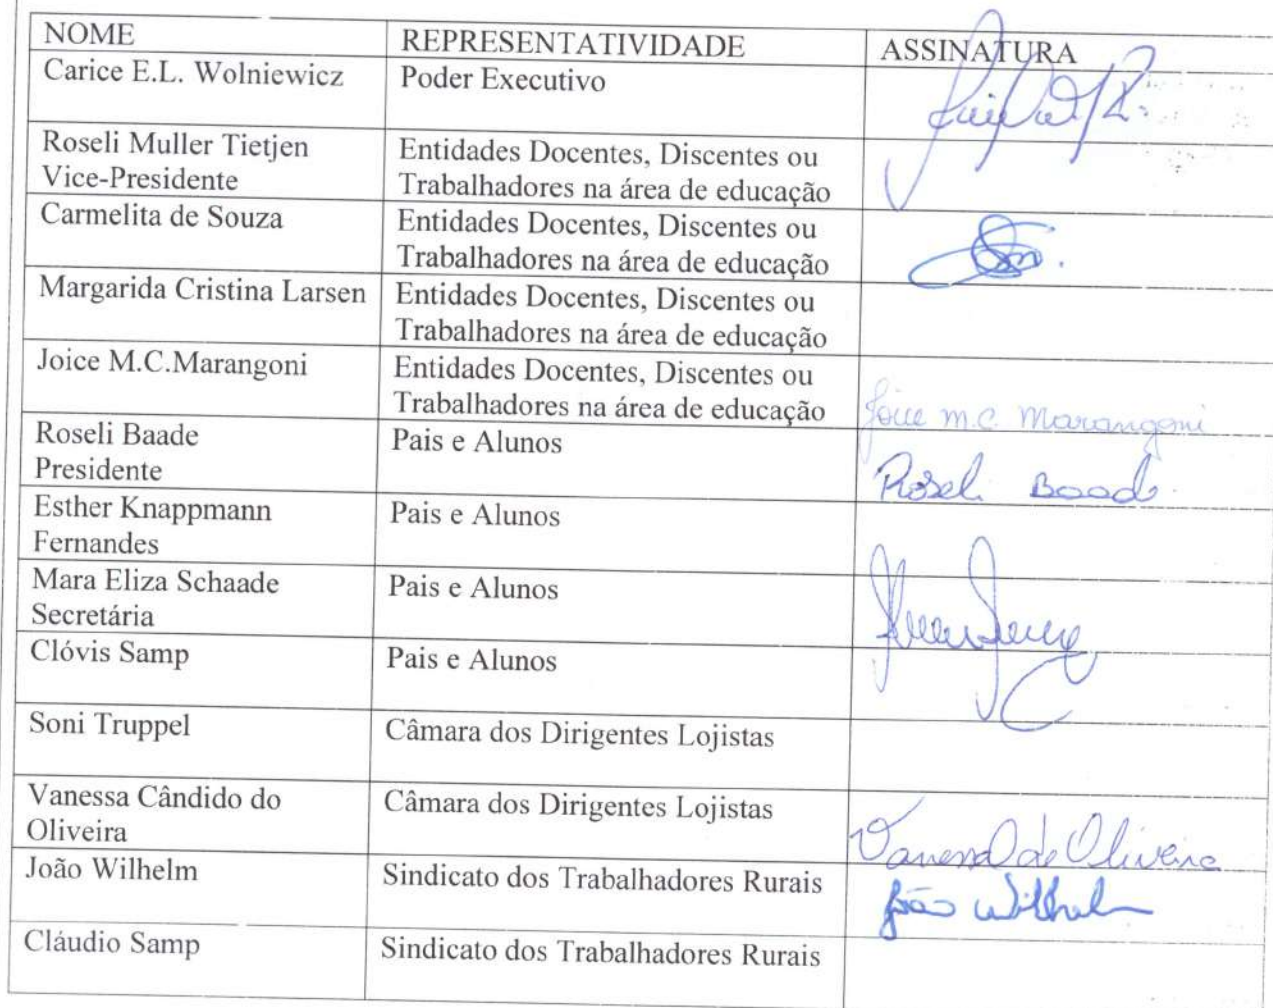 NOME REPRESENTATIVIDADE ASSINATURA
Carice E.L. Wolniewicz Poder Executivo
Roseli Muller Tietjen Entidades Docentes, Discentes ou
Vice-Presidente Trabalhadores na área de educação
Carmelita de Souza Entidades Docentes, Discentes ou
Trabalhadores na área de educação
Margarida Cristina Larsen Entidades Docentes, Discentes ou
Trabalhadores na área de educação
Joice M.C.Marangoni Entidades Docentes, Discentes ou
Trabalhadores na área de educação Joice M.C. Marangoni
Roseli Baade Pais e Alunos
Presidente Roseli Baade
Esther Knappmann Pais e Alunos
Fernandes
Mara Eliza Schaade Pais e Alunos
Secretária
Clóvis Samp Pais e Alunos
Soni Truppel Câmara dos Dirigentes Lojistas
Vanessa Cândido do Câmara dos Dirigentes Lojistas
Oliveira Vanessa de Oliveira
João Wilhelm Sindicato dos Trabalhadores Rurais João Wilhelm
Cláudio Samp Sindicato dos Trabalhadores Rurais